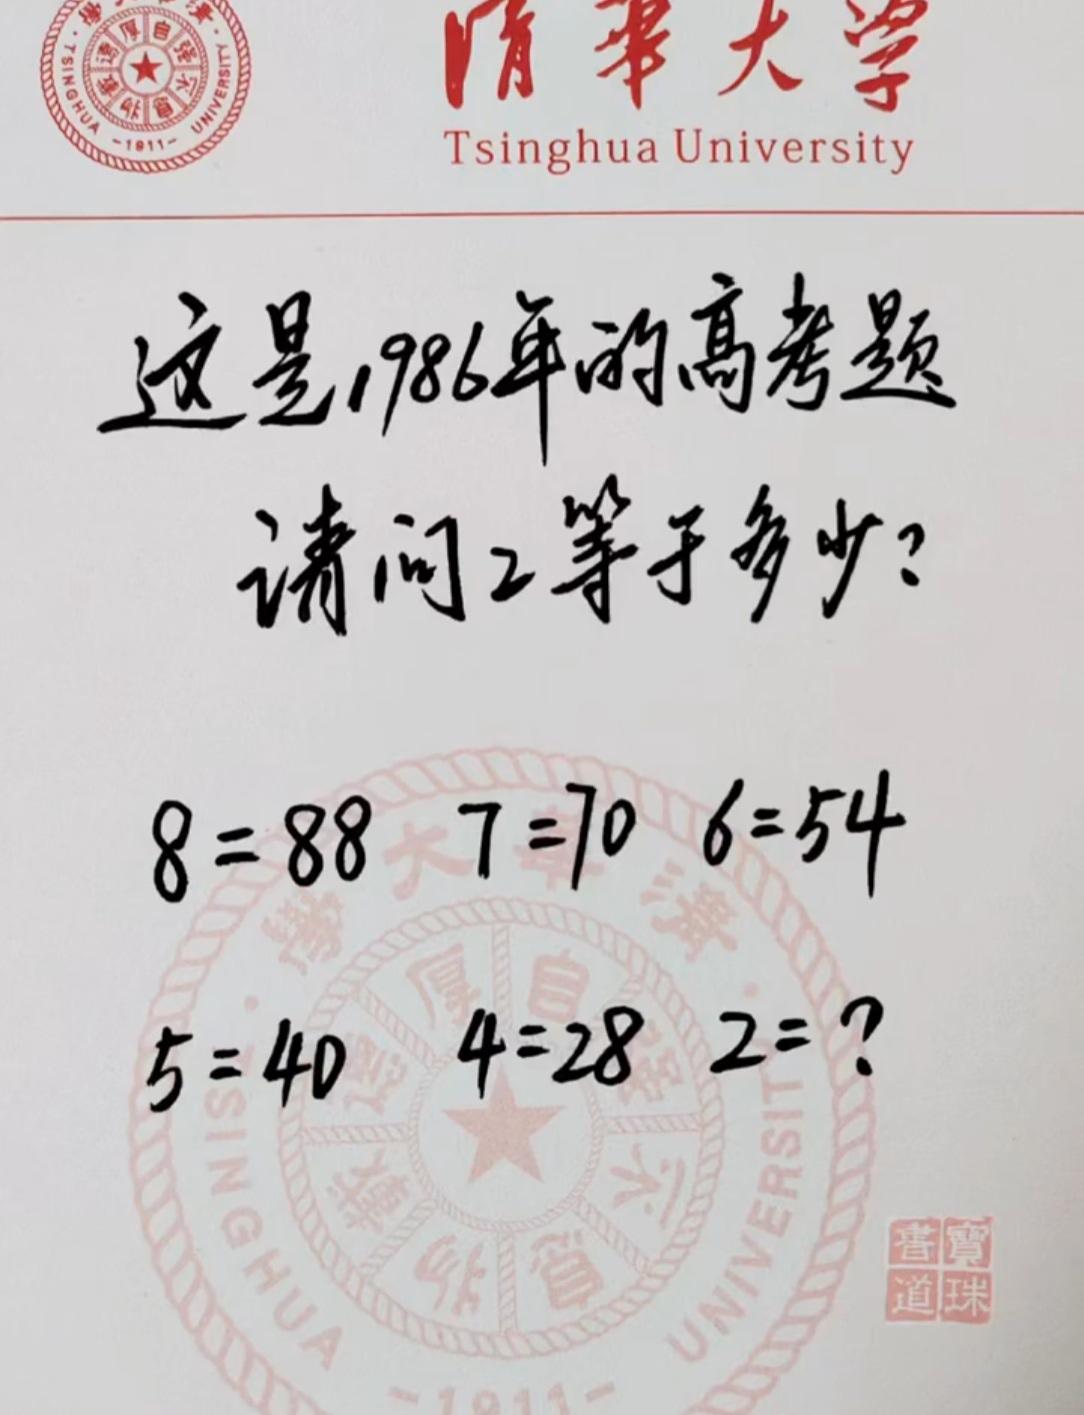 清華大学
Tsinghua University
TSINGHUA UNIVERSITY
-1911-
自强不息
厚德載物
这是1986年的高考题
请问2等于多少?
8=88 7=70 6=54
5=40 4=28 2=?
清華大學
自强不息
厚德載物
TSINGHUA UNIVERSITY
-1911-
寶珠
書道